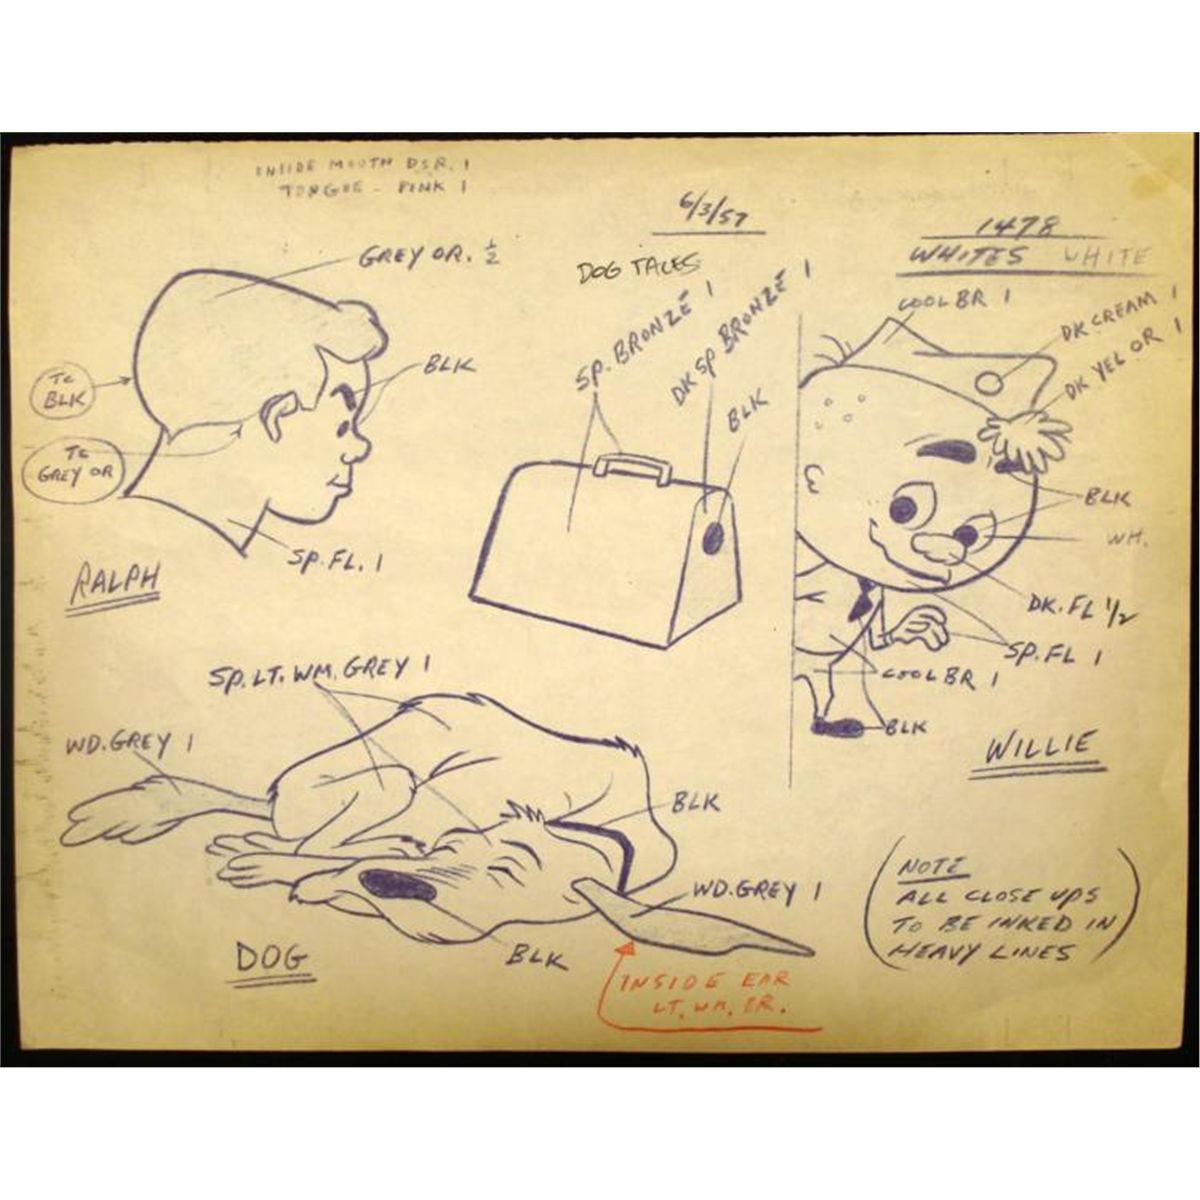 INSIDE MOUTH DSR. 1
TONGUE - PINK 1
6/3/57
DOG TALES
1478
WHITES WHITE
GREY OR. ½
TC
BLK
TC
GREY OR
BLK
SP. FL. 1
RALPH
SP. BRONZE 1
DK SP BRONZE 1
BLK
COOL BR 1
DK CREAM 1
DK YEL OR 1
BLK
WH.
DK. FL ½
SP. FL 1
COOL BR 1
BLK
WILLIE
SP. LT. WM. GREY 1
WD. GREY 1
BLK
WD. GREY 1
BLK
DOG
INSIDE EAR
LT. WM. BR.
NOTE
ALL CLOSE UPS
TO BE INKED IN
HEAVY LINES